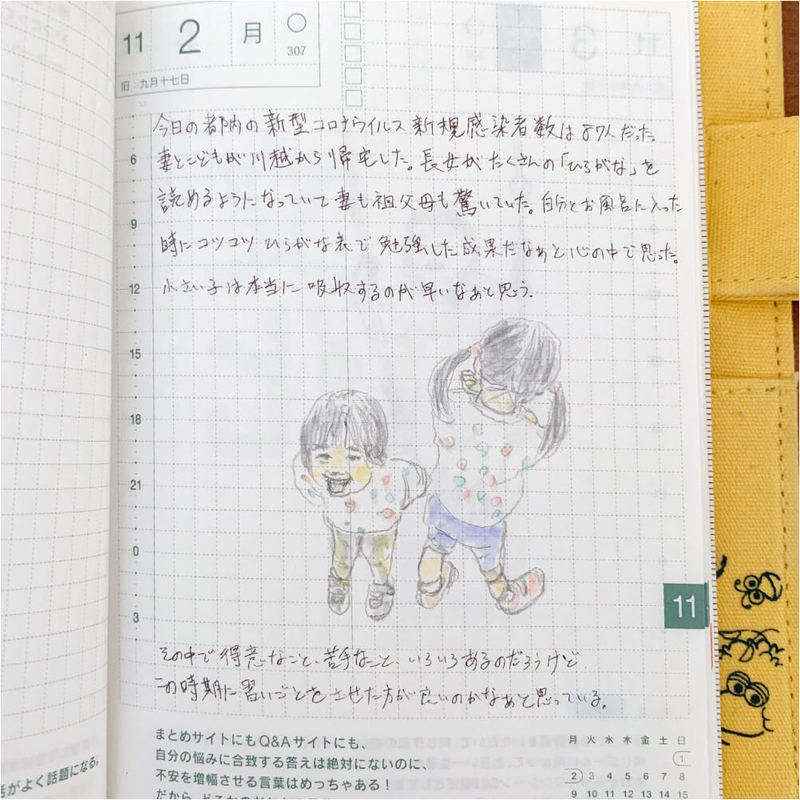 11 2 月 307
旧:九月十七日
11 3
今日の都内の新型コロナウイルス新規感染者数は87人だった。
妻とこどもが川越から帰宅した。長女がたくさんの「ひらがな」を
読めるようになっていて妻も祖父母も驚いていた。自分とお風呂に入った
時にコツコツひらがな表で勉強した成果だなぁと心の中で思った。
小さい子は本当に吸収するのが早いなぁと思う。
6
9
12
15
18
21
0
3
11
その中で得意なこと、苦手なこと、いろいろあるのだろうけど
この時期に習いごとをさせた方が良いのかなぁと思っている。
まとめサイトにもQ&Aサイトにも、
自分の悩みに合致する答えは絶対にないのに、
不安を増幅させる言葉はめっちゃある!
がよく話題になる。
月 火 水 木 金 土 日
1
2 3 4 5 6 7 8
9 10 11 12 13 14 15